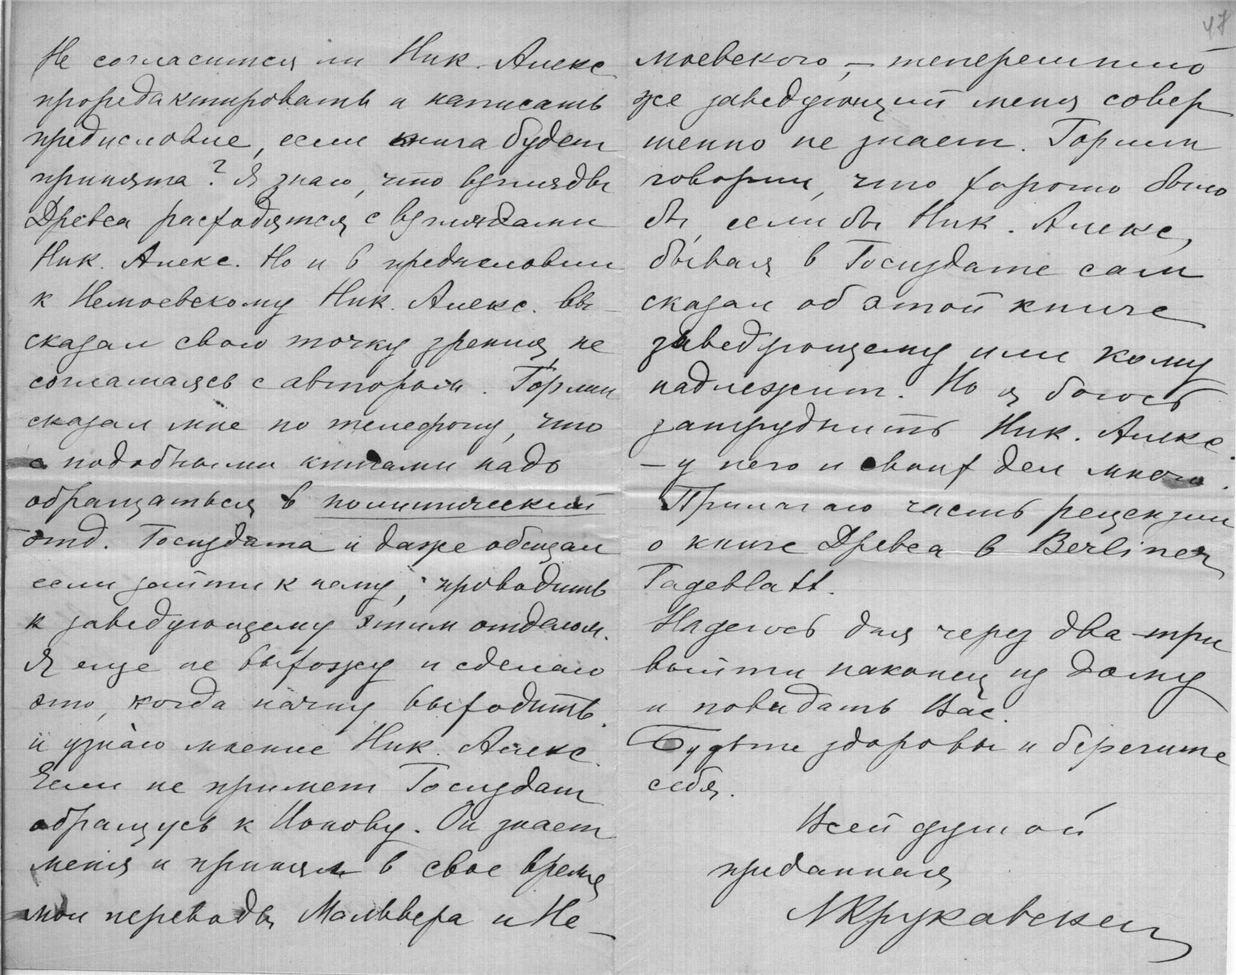 Не согласится ли Ник. Алекс.
проредактировать и написать
предисловие, если книга будет
принята? Я знаю, что взгляды
Древса расходятся с взглядами
Ник. Алекс. Но и в предисловии
к Немоевскому Ник. Алекс. вы-
сказал свою точку зрения, не
соглашаясь с автором. Горлин
сказал мне по телефону, что
с подобными книгами надо
обращаться в политический
отд. Госиздата и даже обещал
если зайти к нему, проводить
к заведующему этим отделом.
Я еще не выхожу и сделаю
это, когда начну выходить
и узнаю мнение Ник. Алекс.
Если не примет Госиздат
обращусь к Ионову. Он знает
меня и принял в свое время
мои переводы Мальвера и Не-
47
моевского, – теперешний
же заведующий меня совер
шенно не знает. Горлин
говорил, что хорошо было
бы, если бы Ник. Алекс,
бывая в Госиздате сам
сказал об этой книге
заведующему или кому
надлежит. Но я боюсь
затруднить Ник. Алекс.
– у него и своих дел много.
Прилагаю часть рецензии
о книге Древса в Berliner
Tageblatt.
Надеюсь дня через два-три
выйти наконец из дому
и повидать Вас.
Будьте здоровы и берегите
себя.
Всей душой
преданная
Л Круковская